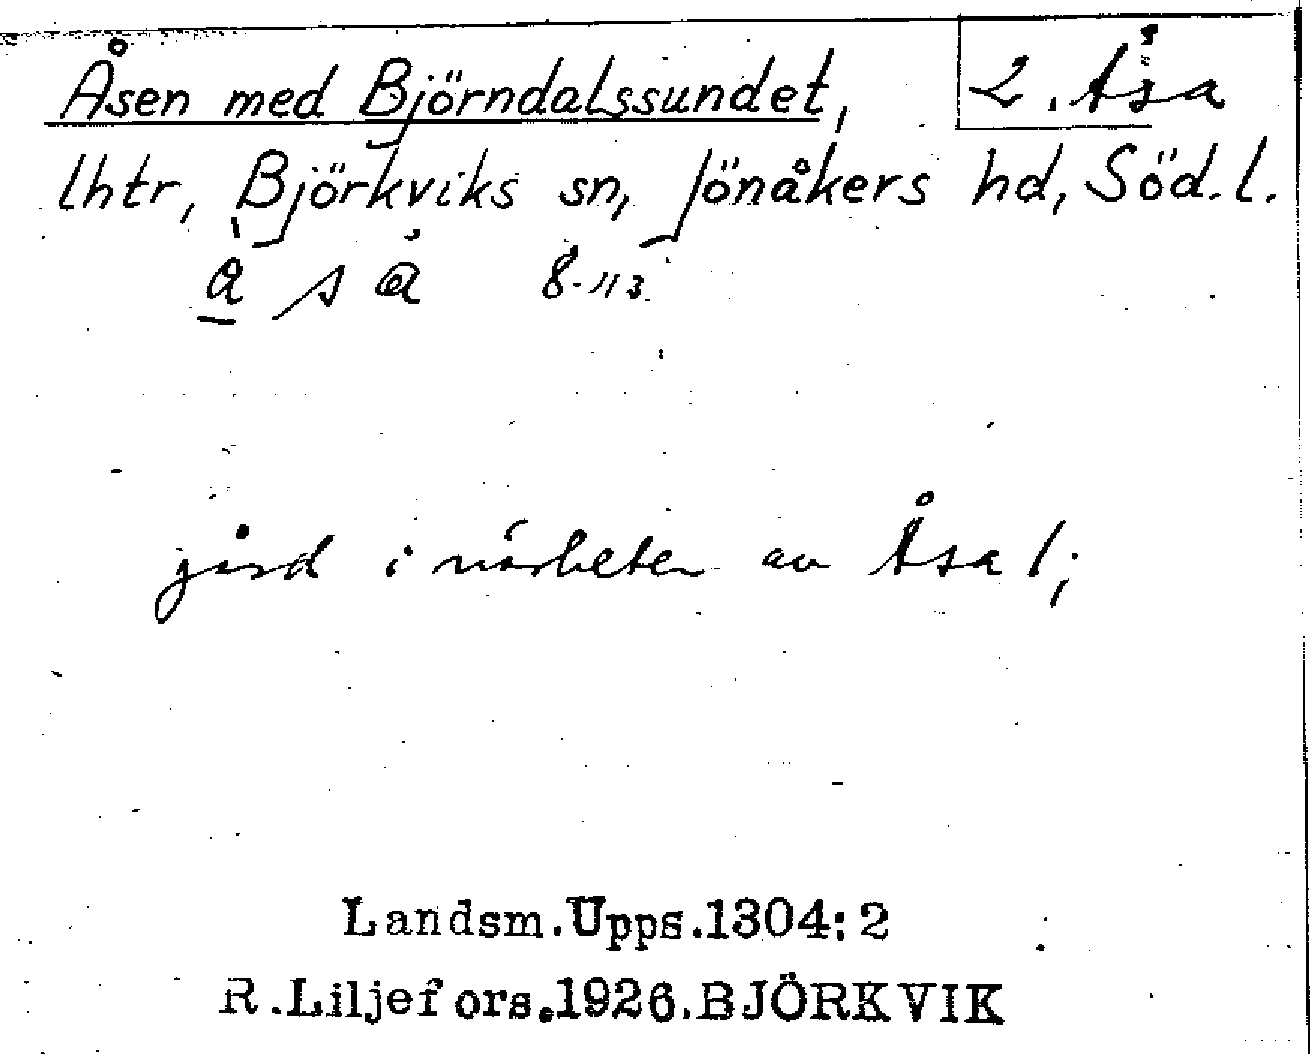 Åsen med Björndalssundet, 2. Åsa
lhtr, Björkviks sn, Jönåkers hd, Söd. l.
8-113.
gård i närheten av Åsa 1;
Landsm.Upps.1304:2
R.Liljefors.1926.BJÖRKVIK